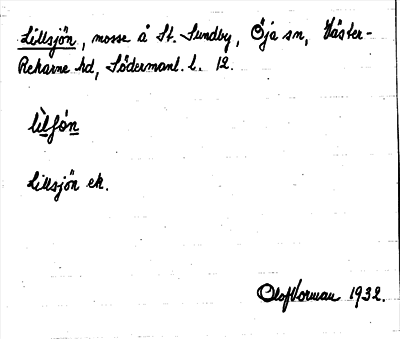 Lillsjön, mosse å St. Sundby, Öja sn, Väster-
Rekarne hd, Södermanl. l. 12.
Lillsjön ek.
Olof Vorman 1932.